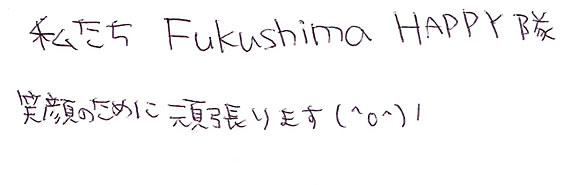 私たち Fukushima HAPPY隊
笑顔のために頑張ります(^o^)!